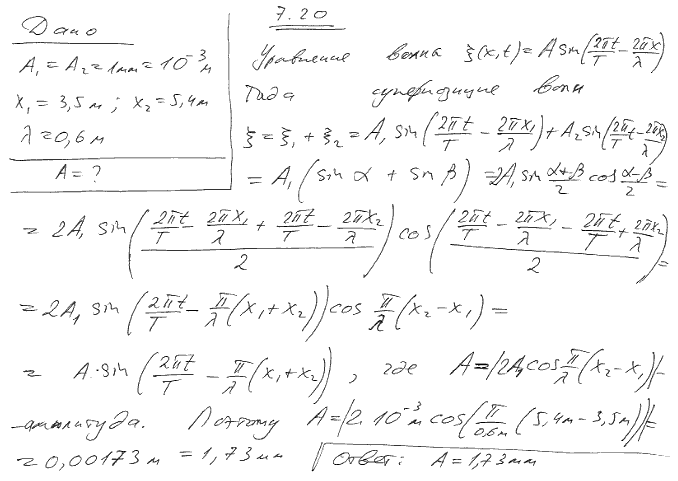 7.20
Дано
A₁ = A₂ = 1мм = 10⁻³ м
x₁ = 3,5 м ; x₂ = 5,4 м
λ = 0,6 м
A = ?
Уравнение волны ξ(x,t) = A sin(2πt/T − 2πx/λ)
Тогда суперпозиция волн
ξ = ξ₁ + ξ₂ = A₁ sin(2πt/T − 2πx₁/λ) + A₂ sin(2πt/T − 2πx₂/λ)
= A₁ (sin α + sin β) = 2A₁ sin (α+β)/2 cos (α−β)/2 =
= 2A₁ sin((2πt/T − 2πx₁/λ + 2πt/T − 2πx₂/λ)/2) cos((2πt/T − 2πx₁/λ − 2πt/T + 2πx₂/λ)/2) =
= 2A₁ sin(2πt/T − π/λ(x₁+x₂)) cos π/λ(x₂−x₁) =
= A·sin(2πt/T − π/λ(x₁+x₂)), где A = |2A₁ cos π/λ(x₂−x₁)| −
амплитуда. Поэтому A = |2·10⁻³ м cos(π/0,6м (5,4м − 3,5м))| =
= 0,00173 м = 1,73 мм Ответ: A = 1,73 мм